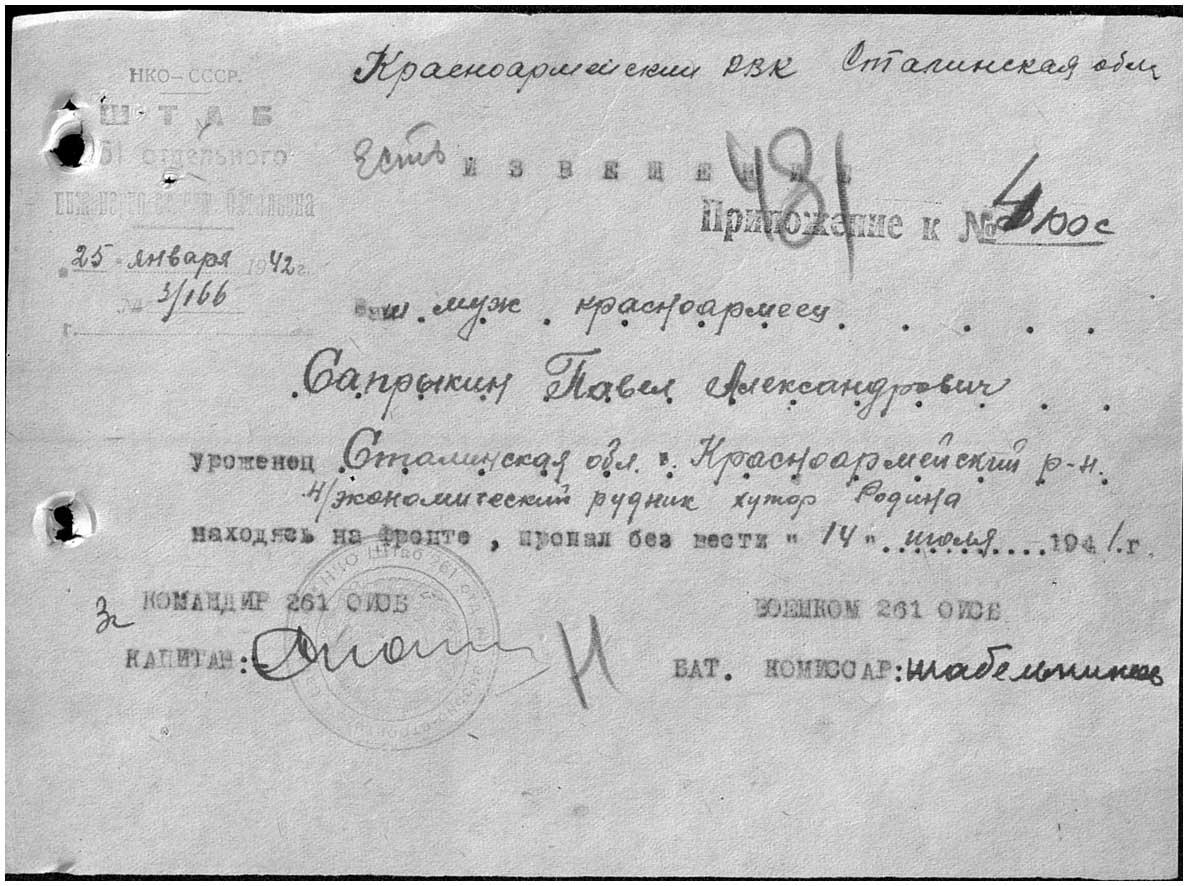 Красноармейский РВК Сталинская обл
НКО–СССР.
ШТАБ
261 отдельного
батальона
"25" января 1942 г.
№ 3/166
г.
Есть ИЗВЕЩЕНИЕ
481
Приложение к №
ваш муж красноармеец
Сапрыкин Павел Александрович
уроженец Сталинская обл. Красноармейский р-н.
Н/экономический рудник хутор Родина
находясь на фронте, пропал без вести "14" июля 1941 г.
КОМАНДИР 261 ОИСБ
ВОЕНКОМ 261 ОИСБ
КАПИТАН:
Н
БАТ. КОМИССАР: Шабельников